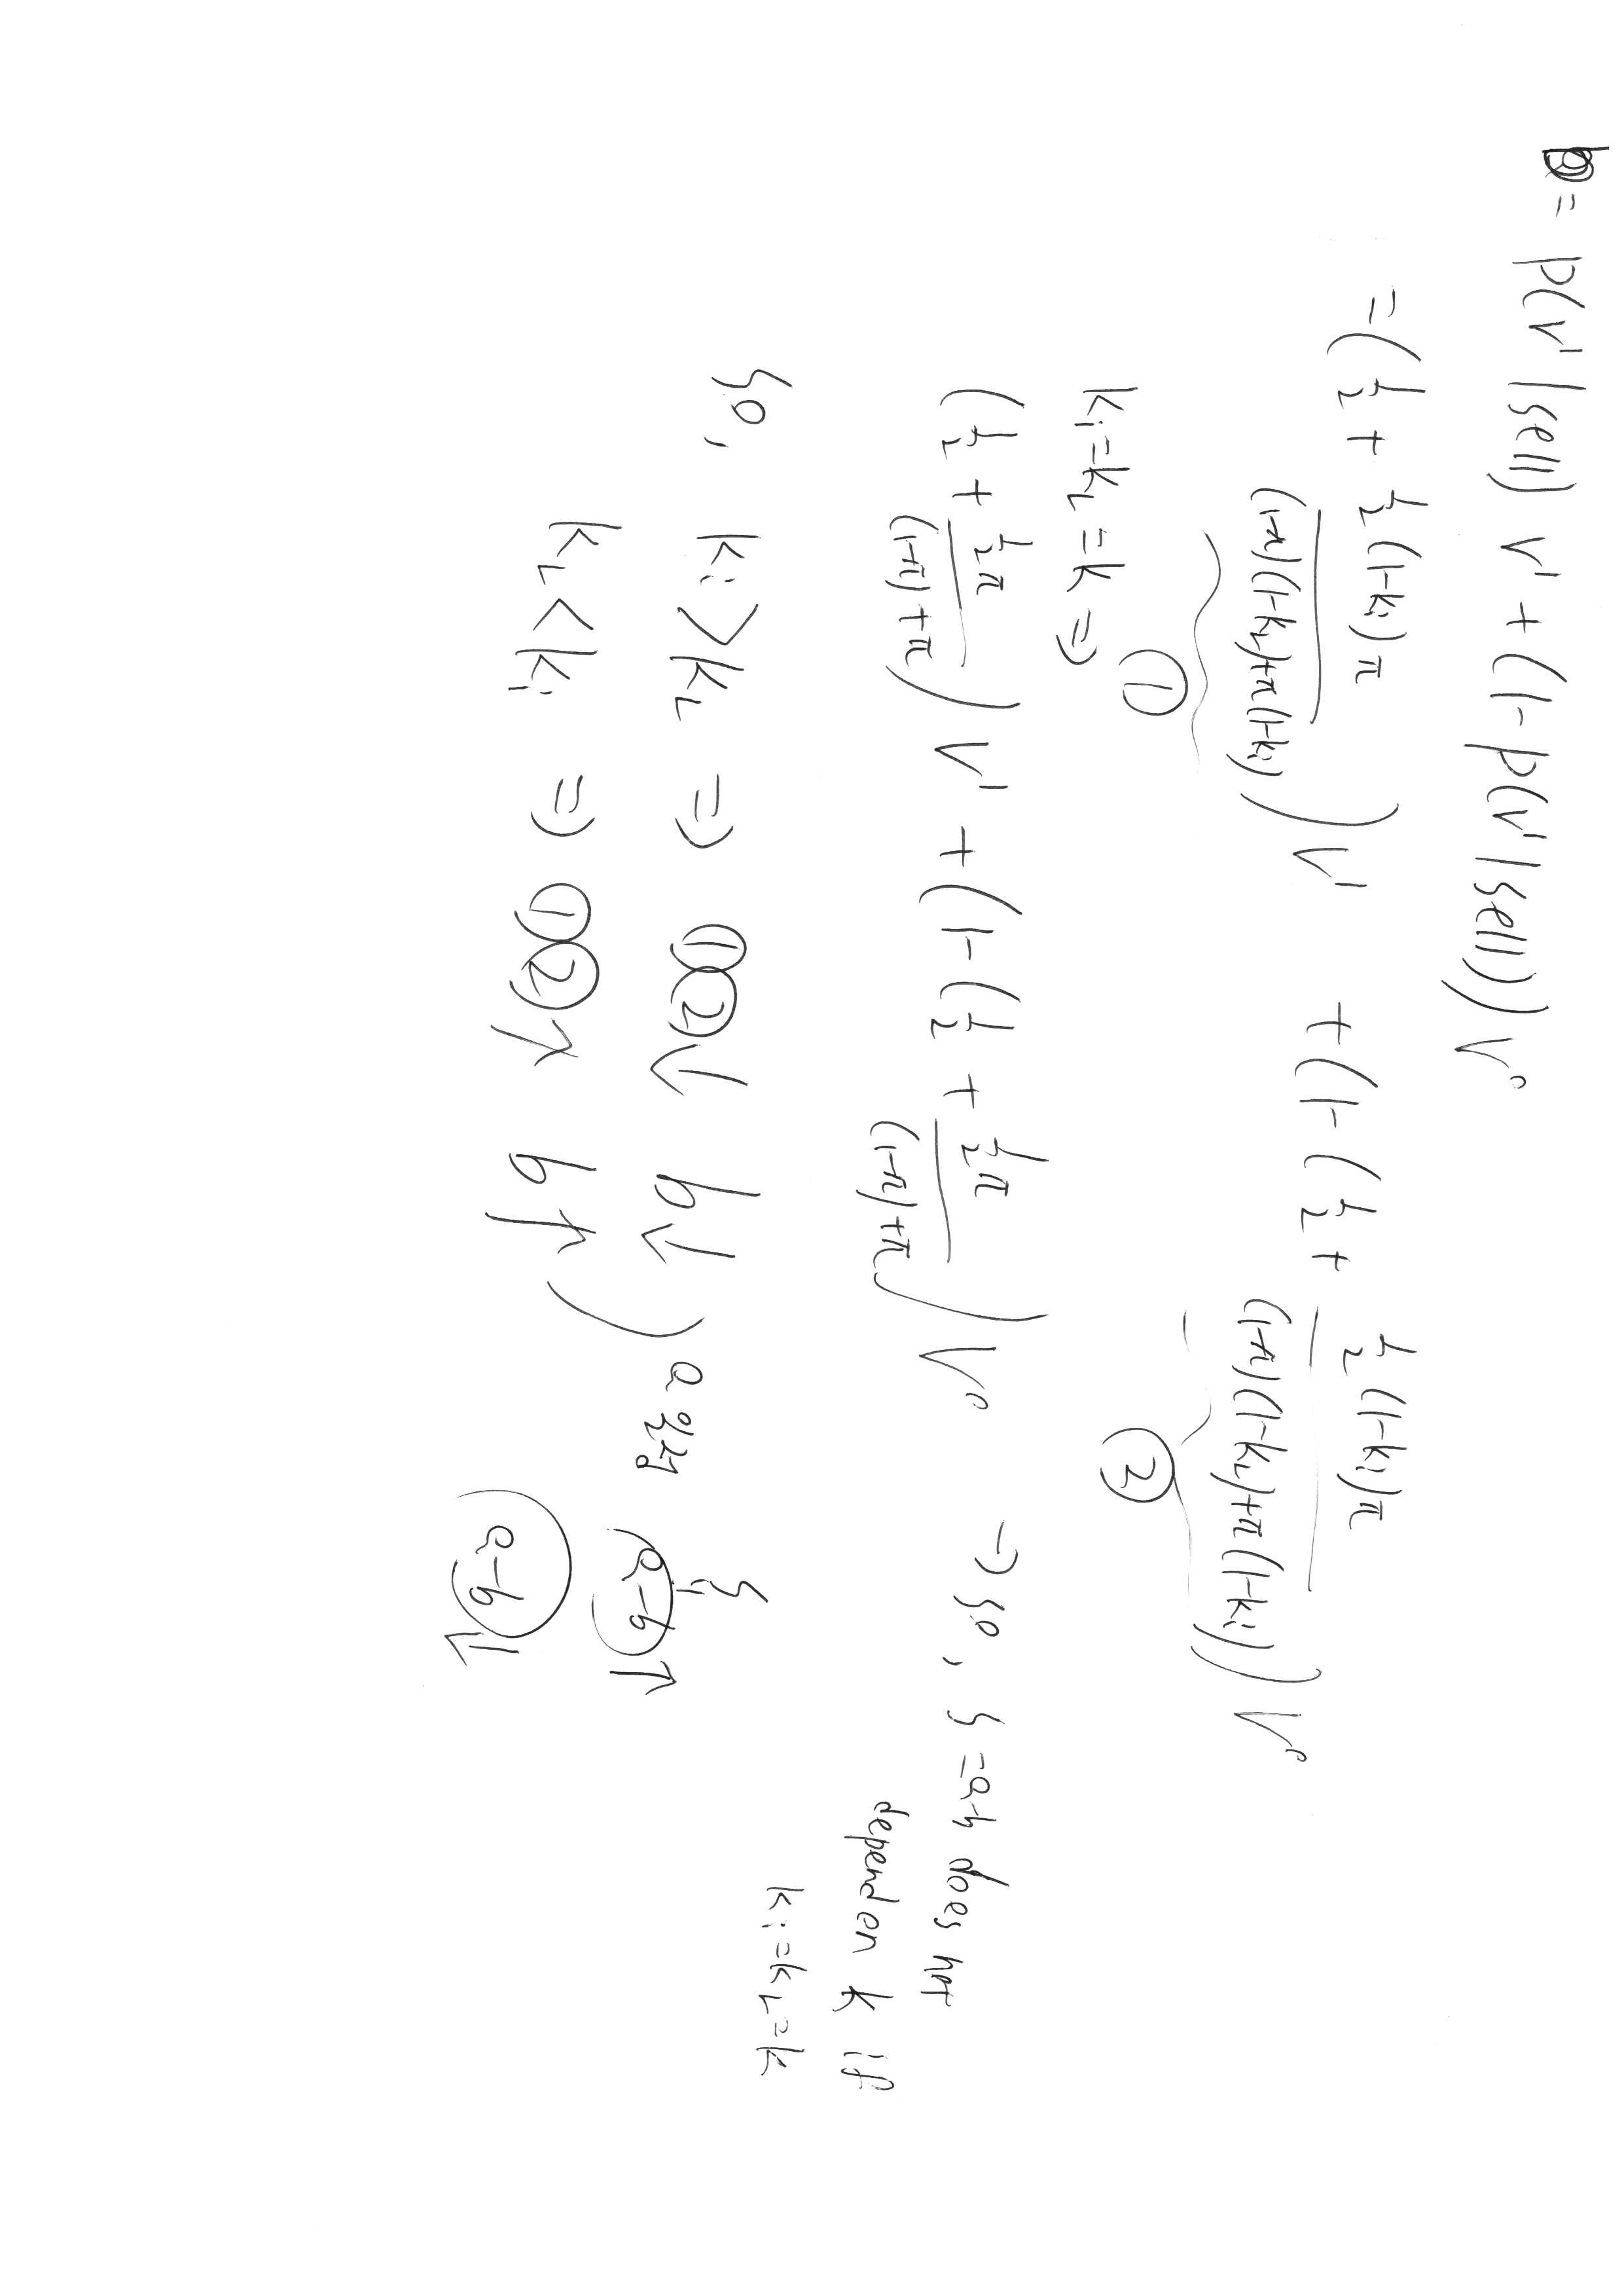 b = P(V¹|sell) V¹ + (1-P(V¹|sell)) V⁰
= ( ½ + ½(1-kᵢ)π / ((1-π)(1-k_L)+π(1-kᵢ)) ) V¹ + (1-( ½ + ½(1-kᵢ)π / ((1-π)(1-k_L)+π(1-kᵢ)) ) V⁰
① ②
kᵢ=k_L=k ⇒
( ½ + ½π / ((1-π)+π) ) V¹ + (1-( ½ + ½π / ((1-π)+π) ) V⁰ → so, S=a-b does not
depend on k if
kᵢ=k_L=k
So, kᵢ>k_L ⇒ ①②↓ b↓ ) a 일정 S
"
a-b ↑
k_L<kᵢ ⇒ ①②↑ b↑
a-b ↓